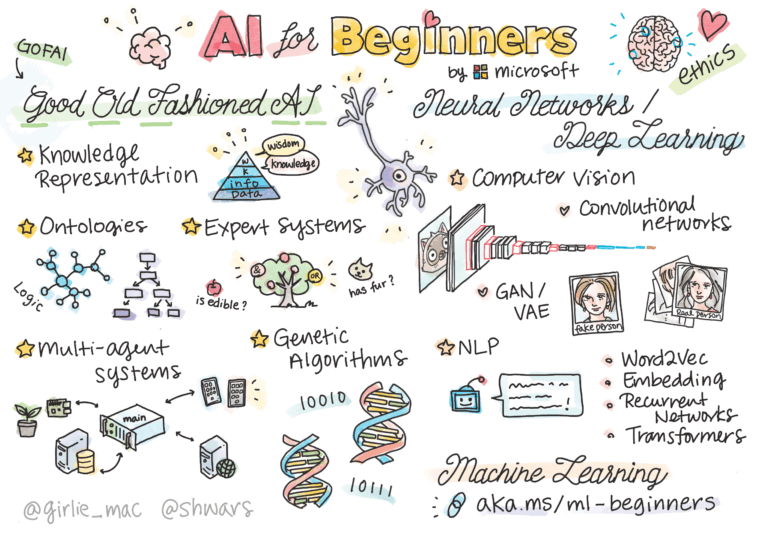 AI for Beginners
by microsoft
GOFAI
ethics
Good Old Fashioned AI
Knowledge
Representation
wisdom
knowledge
W
K
info
Data
Ontologies
Logic
Expert Systems
is edible?
&
OR
has fur?
Multi-agent
systems
main
Genetic
Algorithms
10010
10111
Neural Networks /
Deep Learning
Computer Vision
Convolutional
networks
GAN/
VAE
fake person
Real person
NLP
Word2Vec
Embedding
Recurrent
Networks
Transformers
Machine Learning
aka.ms/ml-beginners
@girlie_mac @shwars